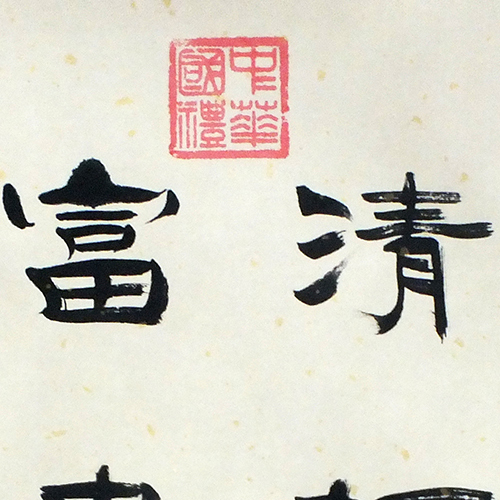 中華國禮
清
富